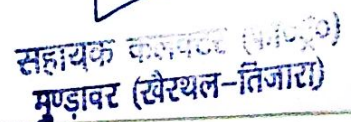 सहायक कलक्टर (फा०ट्रै०)
मुण्डावर (खैरथल-तिजारा)